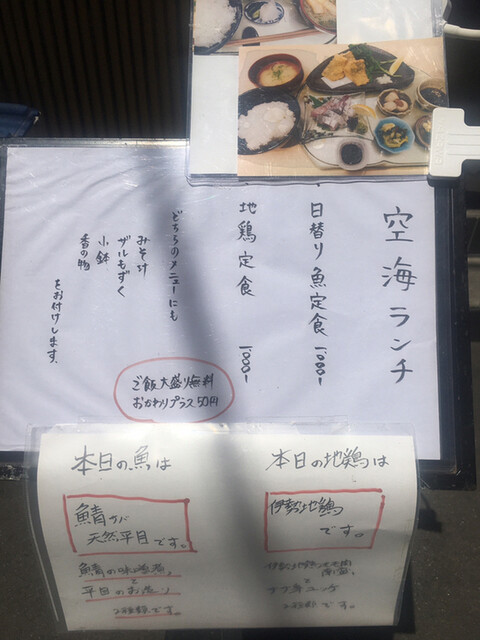 空海ランチ
日替り魚定食 1,000-
地鶏定食 1,000-
どちらのメニューにも
みそ汁
ザルもずく
小鉢
香の物
をお付けします、
ご飯大盛り無料
おかわりプラス50円
本日の魚は
鯖サバ
天然平目です。
鯖の味噌煮、
と
平目のお造り
2種類です。
本日の地鶏は
伊勢地鶏
です。
と
2種類です。